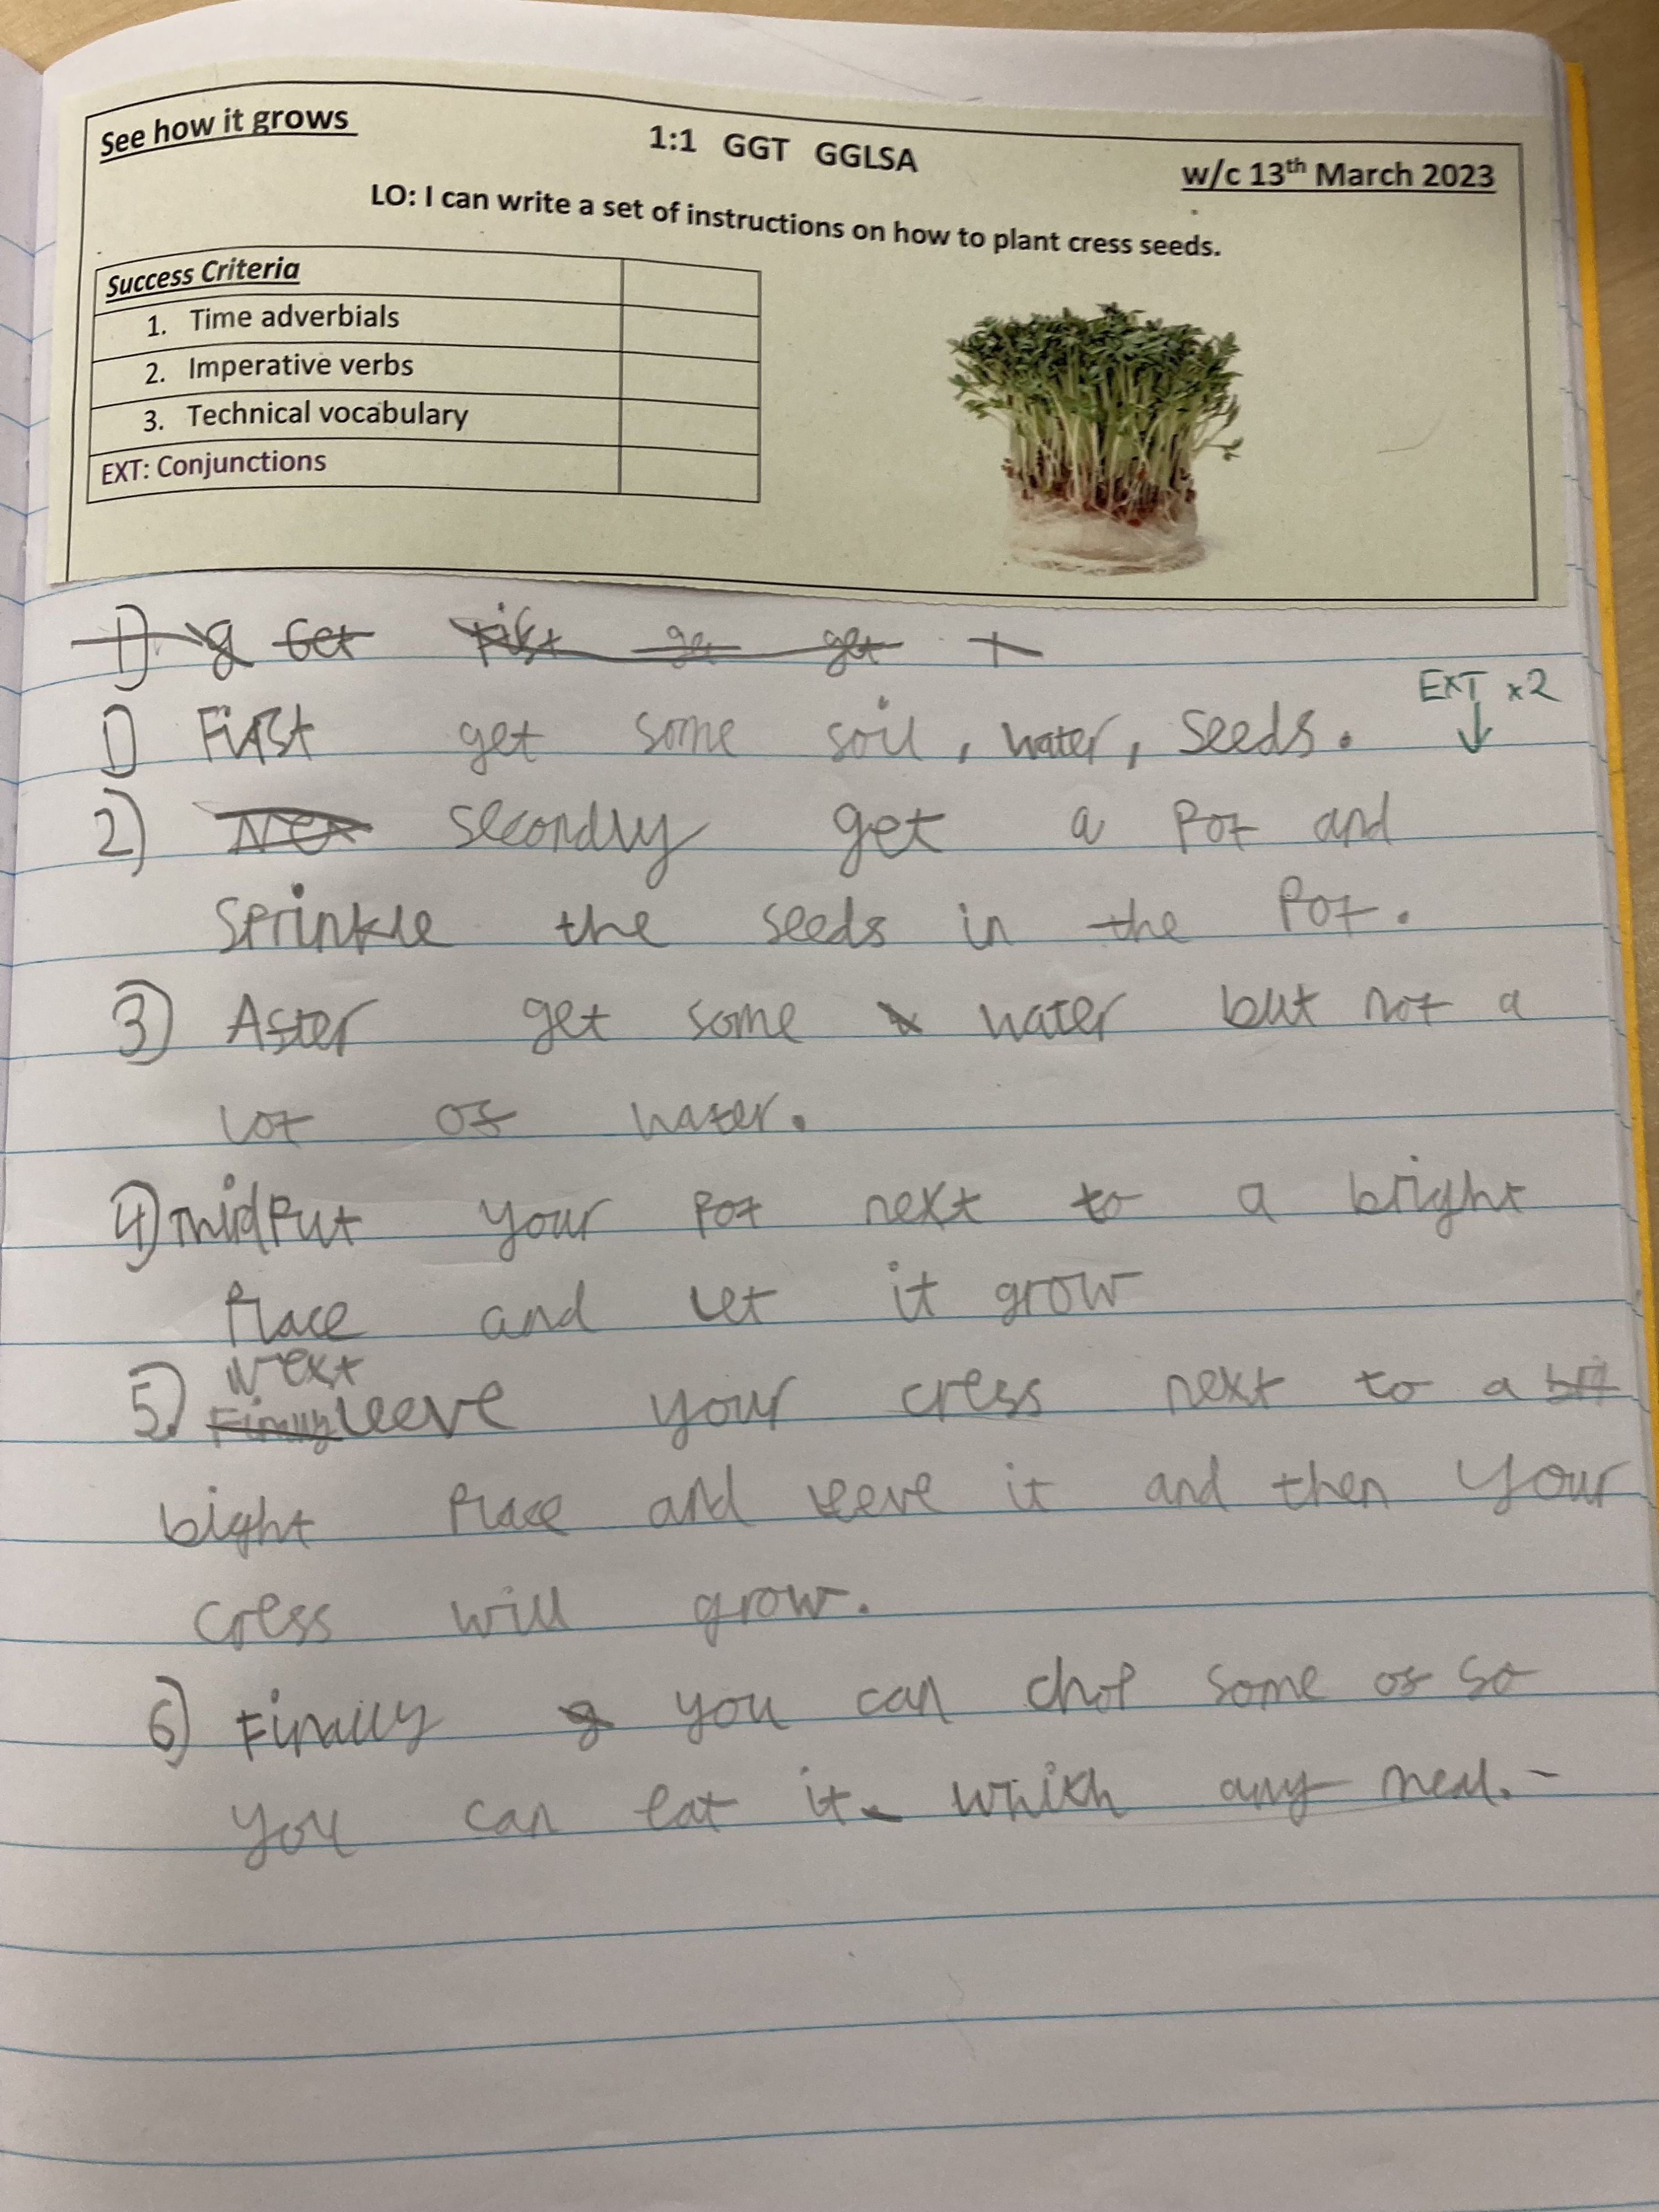 See how it grows
1:1 GGT GGLSA
w/c 13th March 2023
LO: I can write a set of instructions on how to plant cress seeds.
Success Criteria
1. Time adverbials
2. Imperative verbs
3. Technical vocabulary
EXT: Conjunctions
1) g Get first ge get t
EXT x2
1) First get some soil, water, seeds.
2) Nex secondly get a pot and
sprinkle the seeds in the pot.
3) After get some water but not a
lot of water.
4) Thid Put your pot next to a bright
place and let it grow
Next
5) Finally leeve your cress next to a bri
bight place and leeve it and then your
cress will grow.
6) Finally you can chop some of so
you can eat it which any meal.